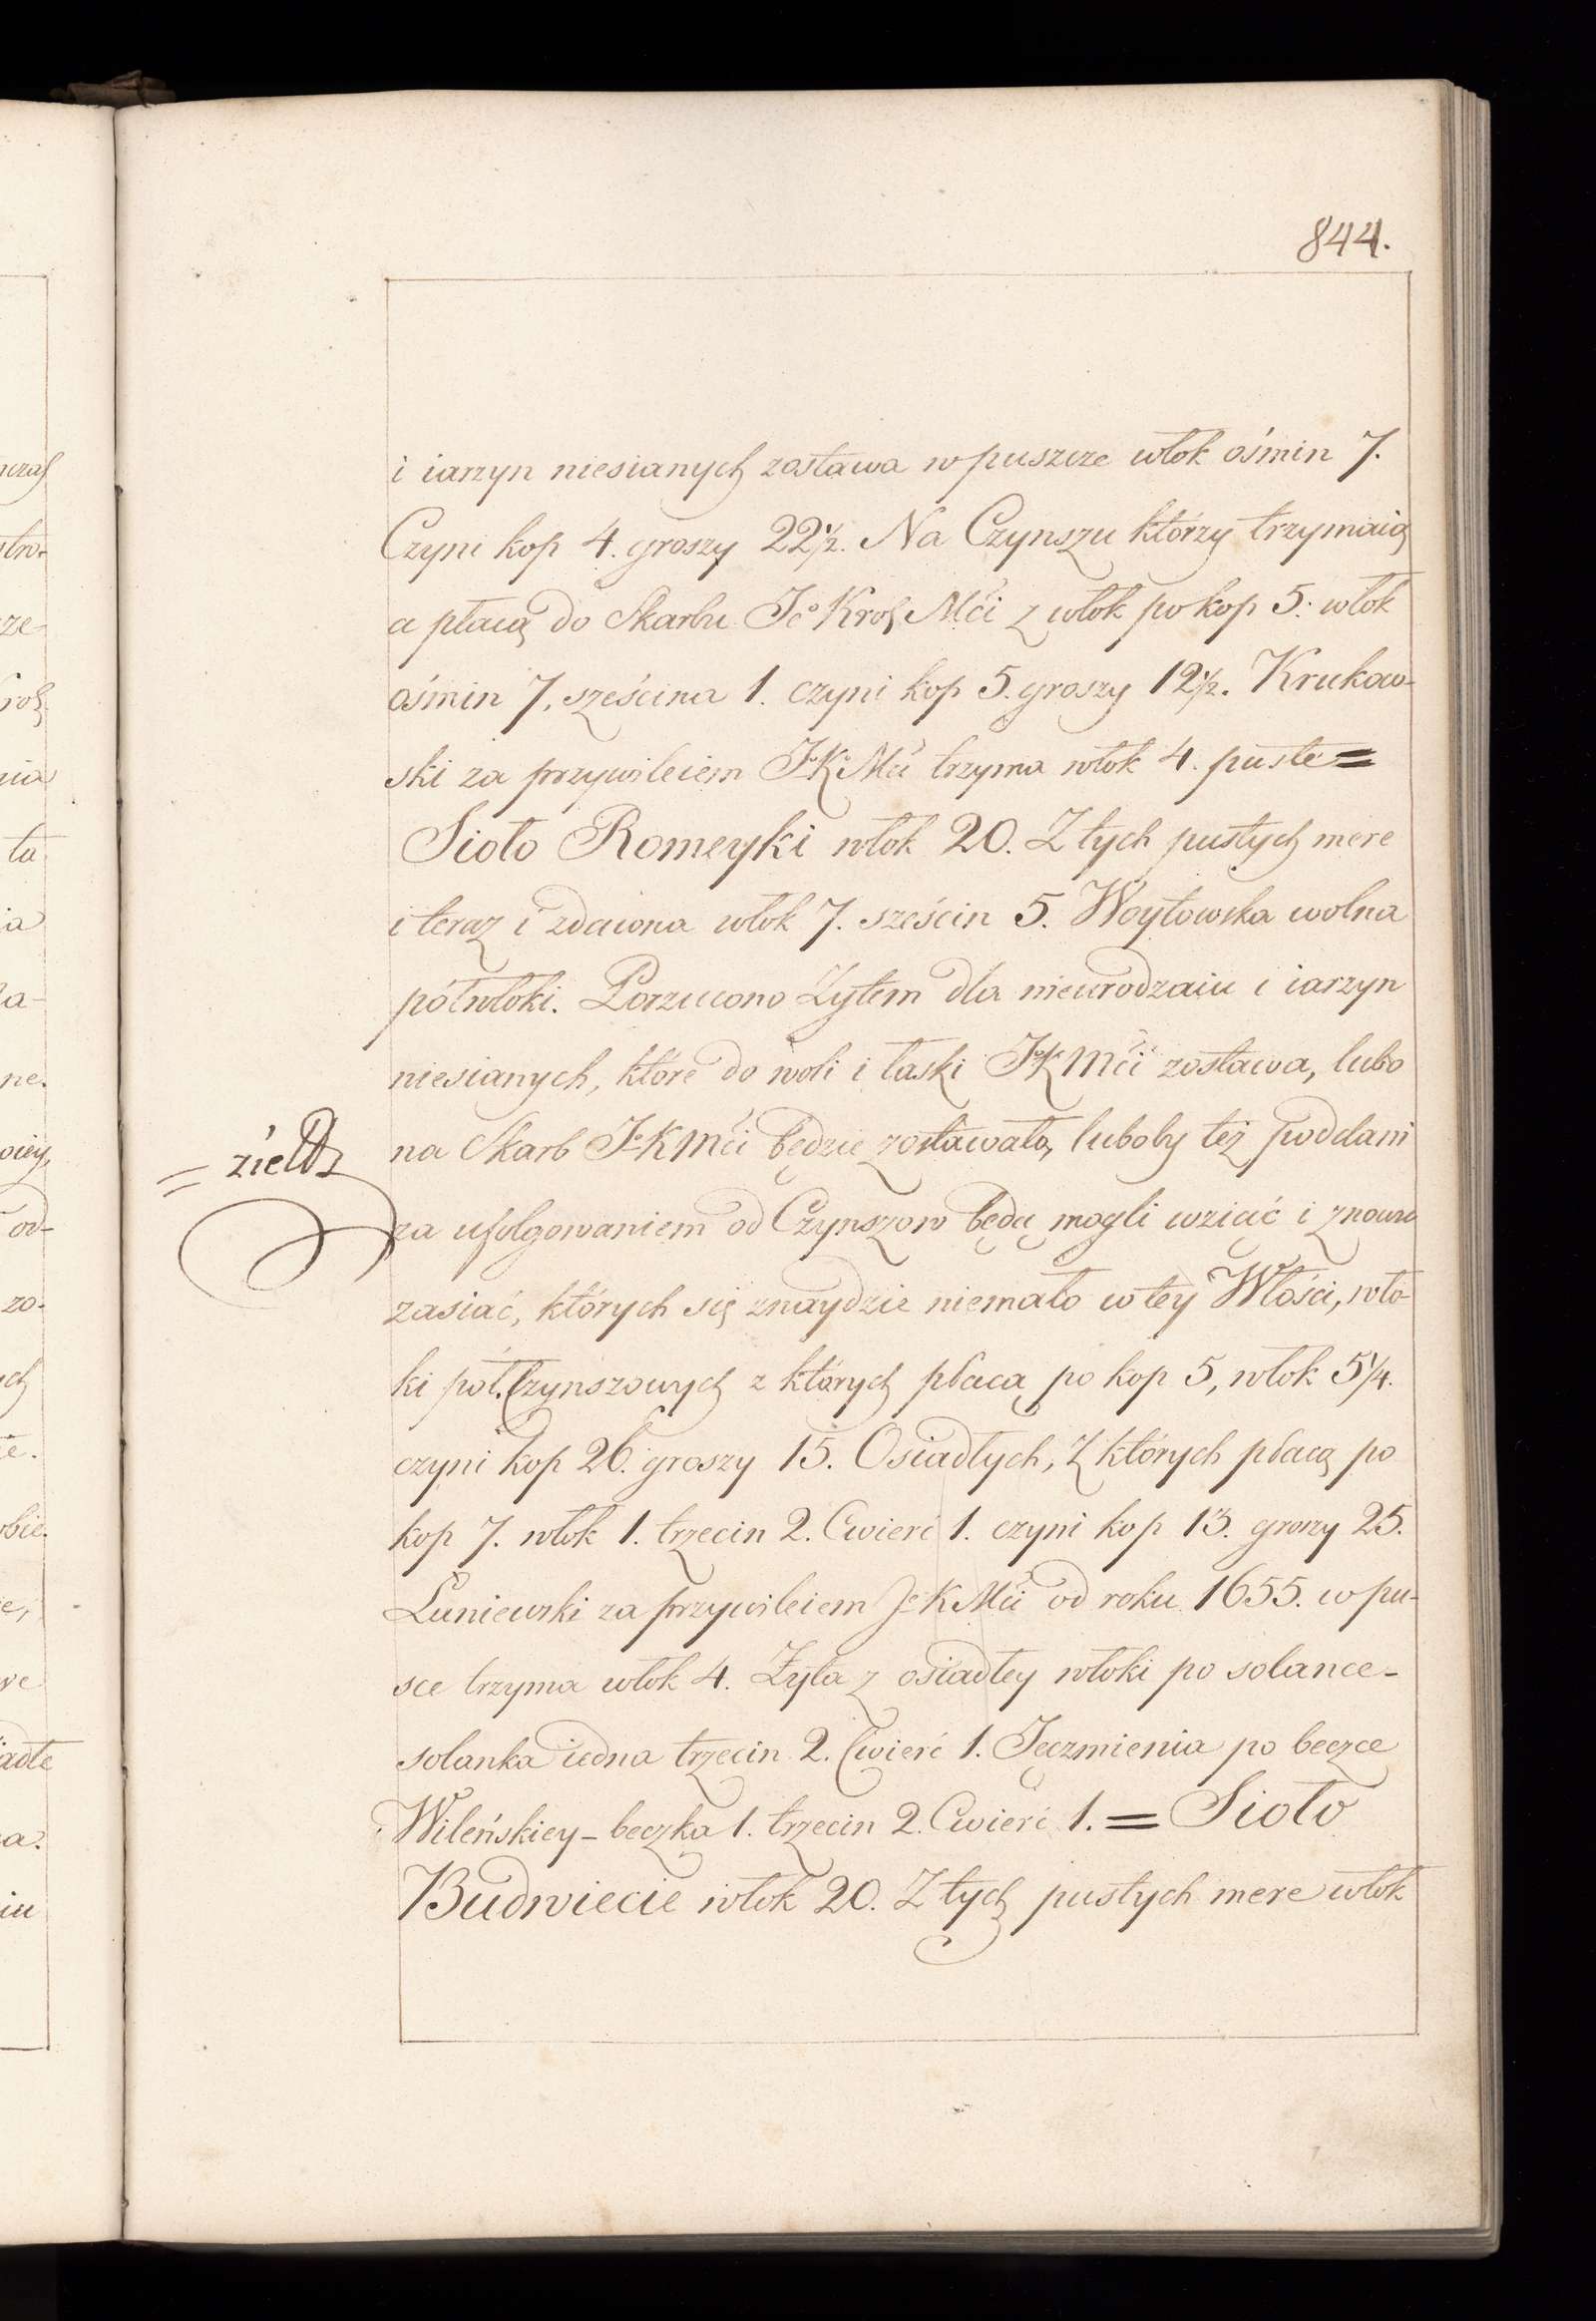 844.
i iarzyn niesianych zostawa w puszcze włok ośmin 7.
Czyni kop 4. groszy 22½. Na Czynszu którzy trzymaią
a płacą do Skarbu Jeo Krol Mći z włok po kop 5. włok
ośmin 7, sześcina 1. czyni kop 5. groszy 12½. Krukow-
ski za przywileiem JKMći trzyma włok 4. puste =
Sioło Romeyki włok 20. Z tych pustych mere
i teraz i zdawna włok 7. sześcin 5. Woytowska wolna
półwłoki. Porzucono Żytem dla nieurodzaiu i iarzyn
niesianych, które do woli i łaski JKMći zostawa, lubo
na Skarb JKMći będzie zostawało, luboby też poddani
= zieltz
za ufolgowaniem od Czynszow będą mogli wziąć i znowu
zasiać, których się znaydzie niemało w tey Włości, wło-
ki pół. Czynszowych z których płacą po kop 5, włok 5¼.
czyni kop 26. groszy 15. Osiadłych, z których płacą po
kop 7. włok 1. trzecin 2. Cwierć 1. czyni kop 13. groszy 25.
Łuniewski za przywileiem JeKMći od roku 1655. w pu-
sce trzyma włok 4. Żyta z osiadłey włoki po solance -
solanka iedna trzecin 2. Cwierć 1. Jęczmienia po beczce
Wileńskiey - beczka 1. trzecin 2. Cwierć 1. = Sioło
Budwiecie włok 20. Z tych pustych mere włok